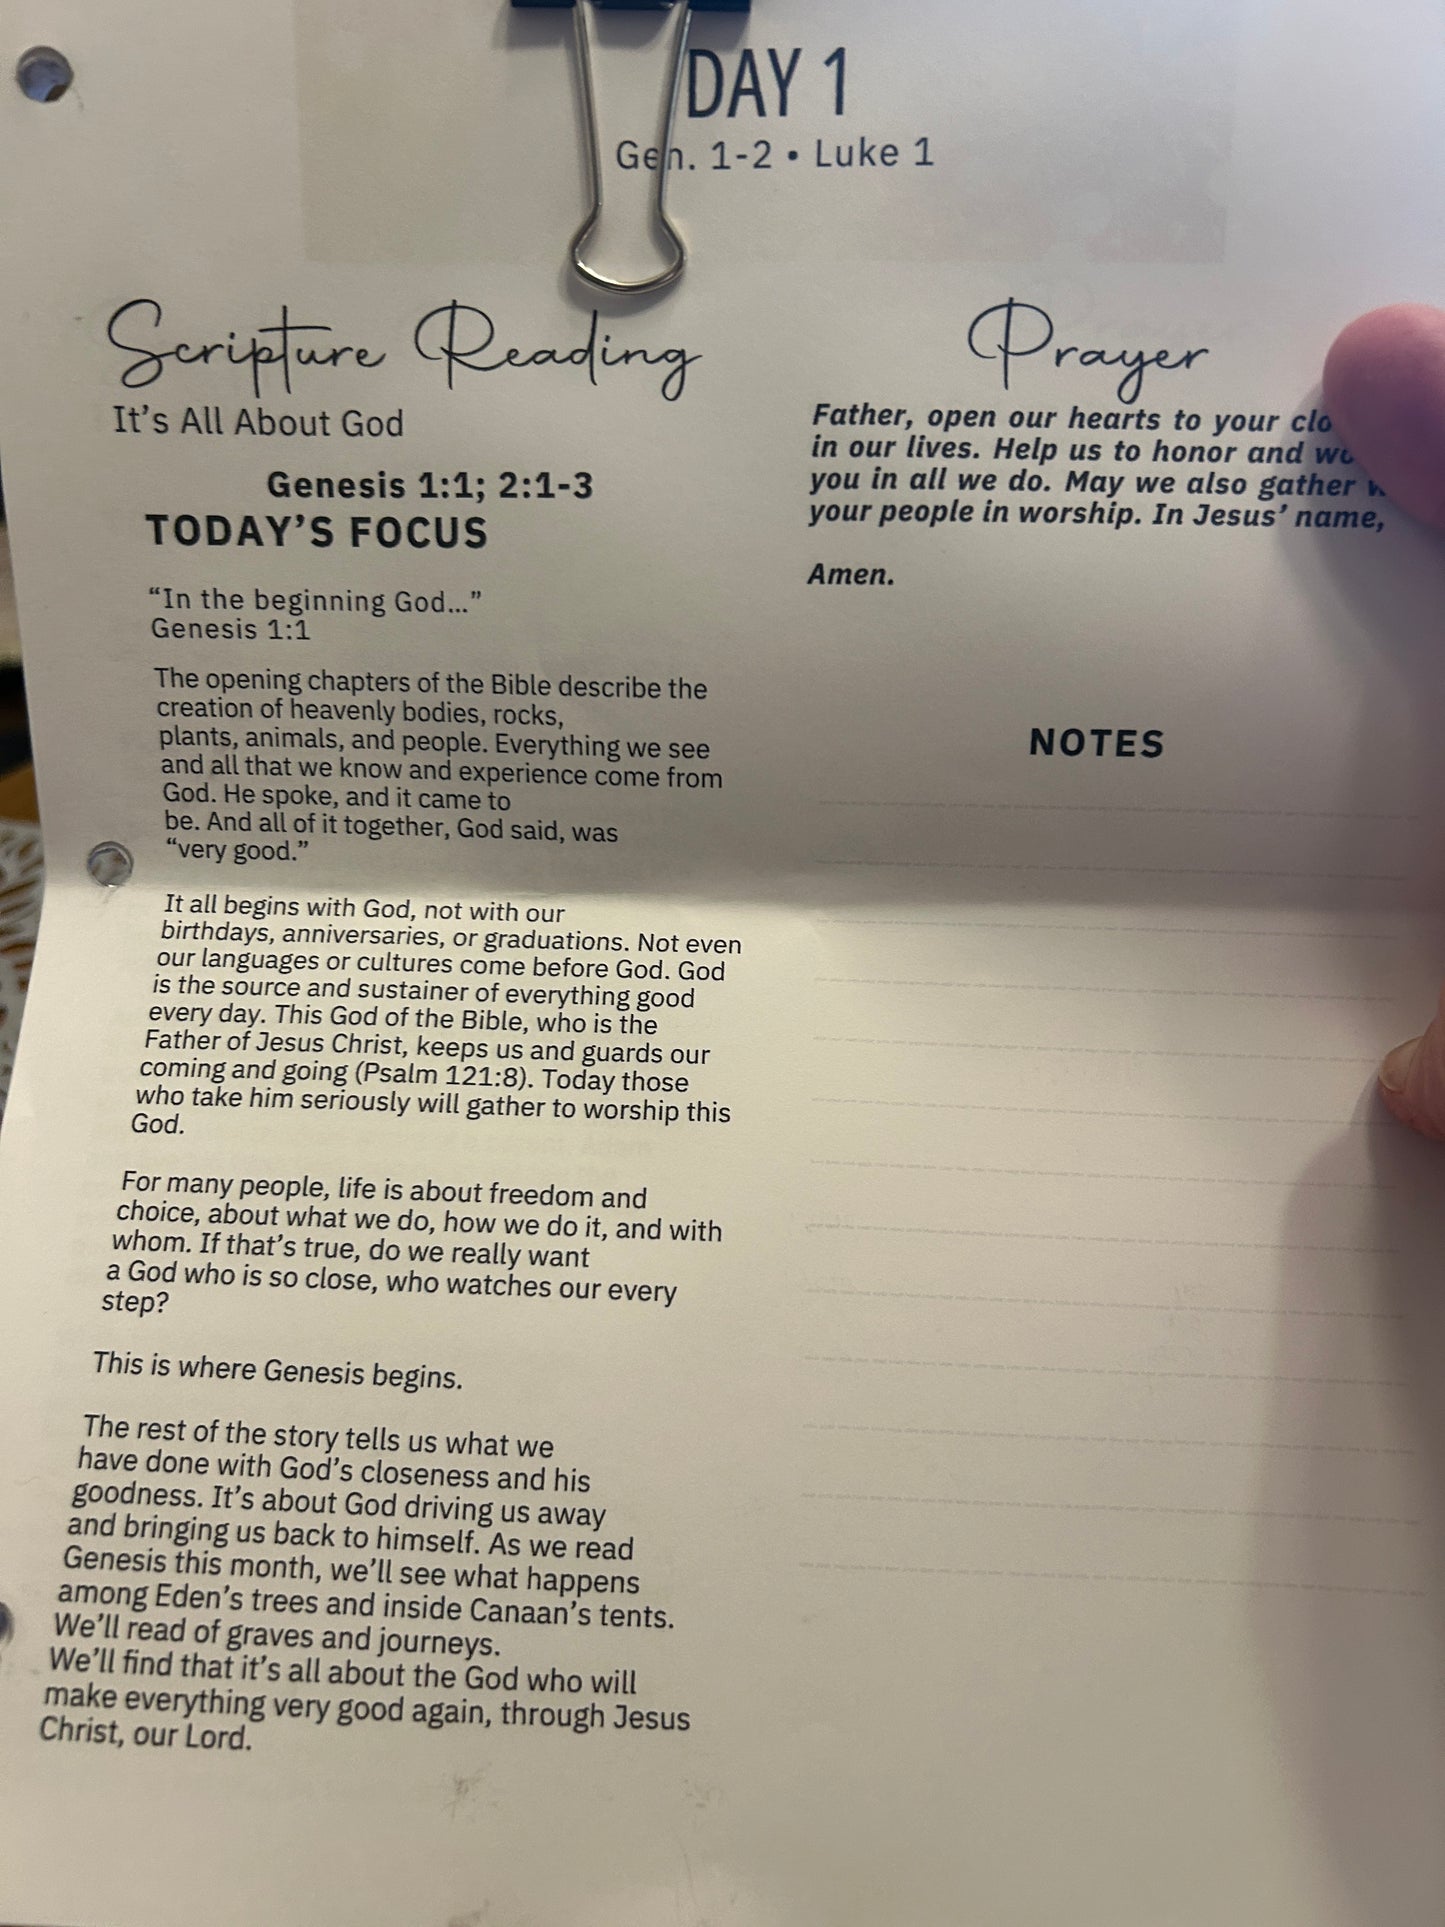 DAY 1
Gen. 1-2 • Luke 1
Scripture Reading
It's All About God
Genesis 1:1; 2:1-3
TODAY'S FOCUS
“In the beginning God...”
Genesis 1:1
The opening chapters of the Bible describe the
creation of heavenly bodies, rocks,
plants, animals, and people. Everything we see
and all that we know and experience come from
God. He spoke, and it came to
be. And all of it together, God said, was
“very good.”
It all begins with God, not with our
birthdays, anniversaries, or graduations. Not even
our languages or cultures come before God. God
is the source and sustainer of everything good
every day. This God of the Bible, who is the
Father of Jesus Christ, keeps us and guards our
coming and going (Psalm 121:8). Today those
who take him seriously will gather to worship this
God.
For many people, life is about freedom and
choice, about what we do, how we do it, and with
whom. If that's true, do we really want
a God who is so close, who watches our every
step?
This is where Genesis begins.
The rest of the story tells us what we
have done with God's closeness and his
goodness. It's about God driving us away
and bringing us back to himself. As we read
Genesis this month, we'll see what happens
among Eden's trees and inside Canaan's tents.
We'll read of graves and journeys.
We'll find that it's all about the God who will
make everything very good again, through Jesus
Christ, our Lord.
Prayer
Father, open our hearts to your
in our lives. Help us to honor and
you in all we do. May we also gather
your people in worship. In Jesus' name,
Amen.
NOTES